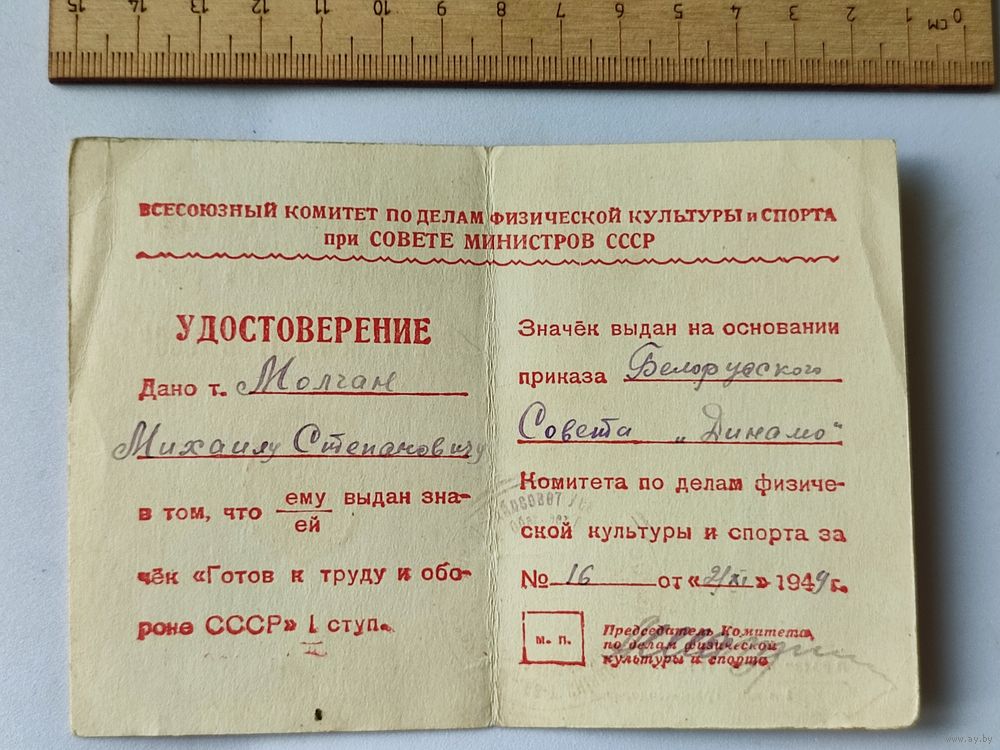 15 14 13 12 11 10 9 8 7 6 5 4 3 2 1 0 см
ВСЕСОЮЗНЫЙ КОМИТЕТ ПО ДЕЛАМ ФИЗИЧЕСКОЙ КУЛЬТУРЫ и СПОРТА
при СОВЕТЕ МИНИСТРОВ СССР
УДОСТОВЕРЕНИЕ
Дано т. Молчан
Михаилу Степановичу
в том, что ему/ей выдан зна-
чёк «Готов к труду и обо-
роне СССР» I ступ.
Значёк выдан на основании
приказа Белорусского
Совета „Динамо"
Комитета по делам физиче-
ской культуры и спорта за
№ 16 от «2/XI» 1949 г.
м. п.
Председатель Комитета
по делам физической
культуры и спорта
www.ay.by